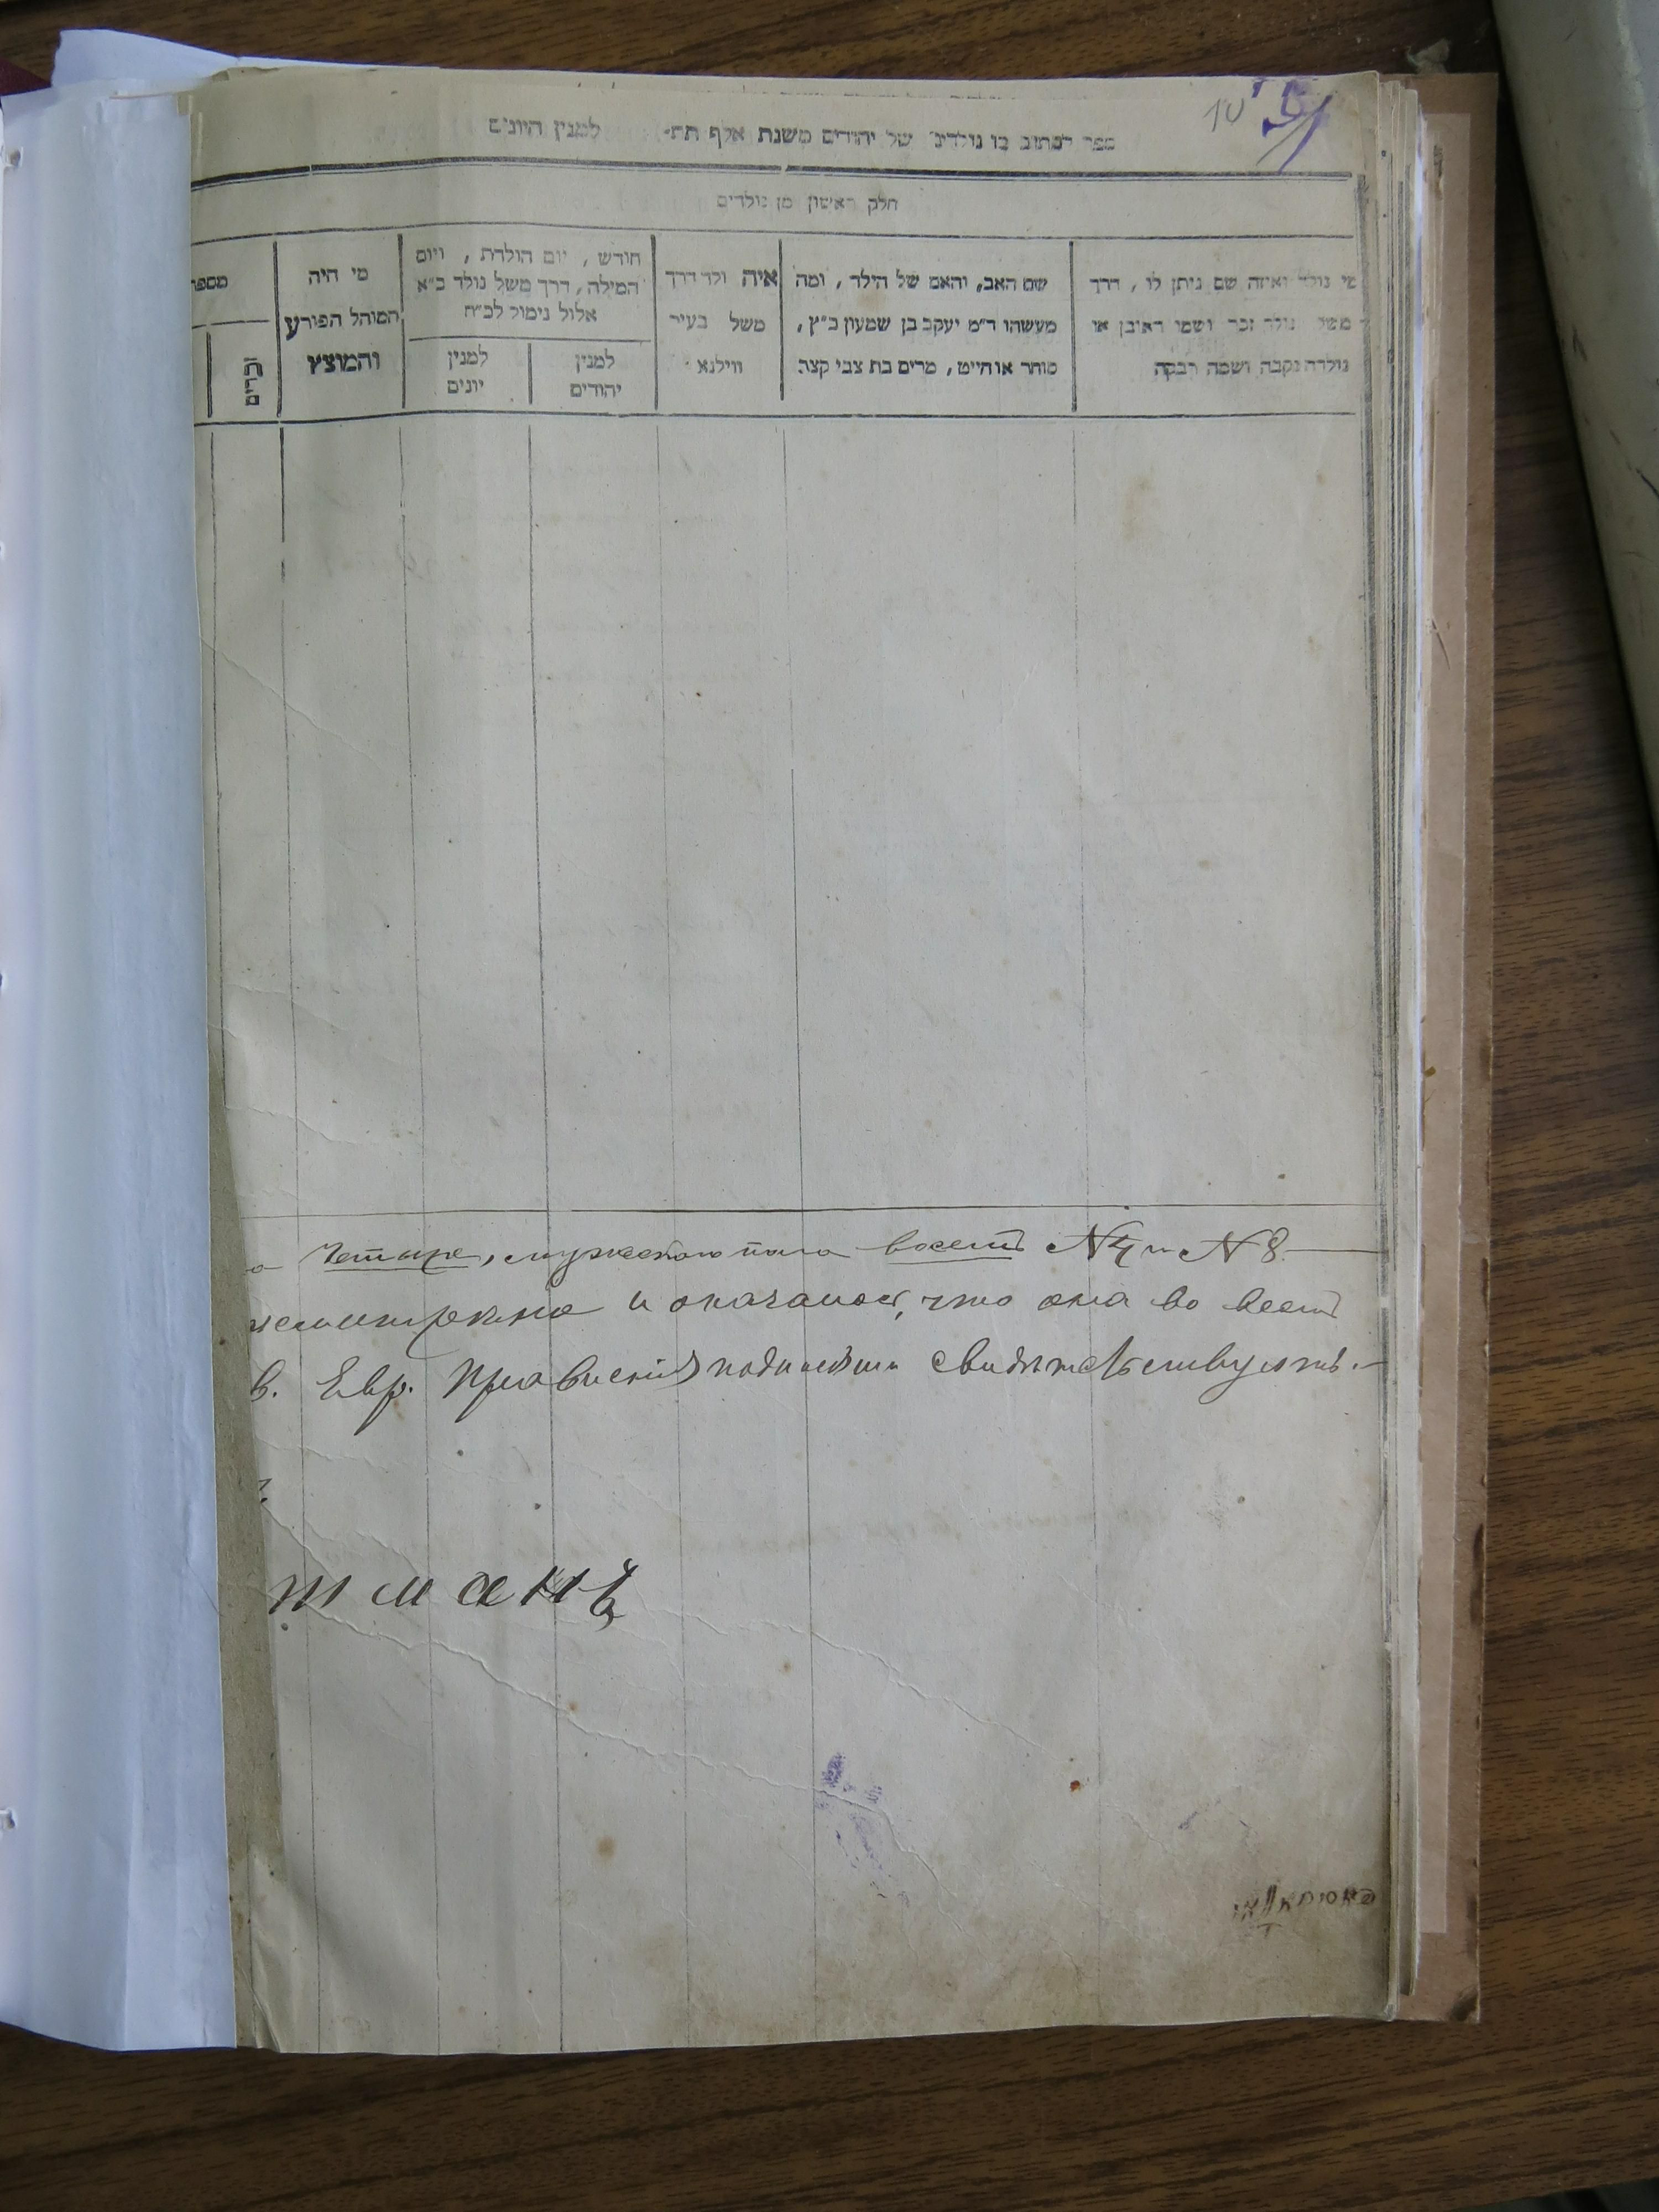 10
ספר לכתוב בו נולדים של יהודים משנת אלף תת- למנין היונים
חלק ראשון מן נולדים
מי נולד ואיזה שם ניתן לו, דרך
משל נולד זכר ושמו ראובן או
נולדה נקבה ושמה רבקה
שם האב, והאם של הילד, ומה
מעשהו ד״מ יעקב בן שמעון כ״ץ,
סוחר או חייט, מרים בת צבי קצב
איה ולד דרך
משל בעיר
ווילנא
חודש, יום הולדת, ויום
המילה, דרך משל נולד כ״א
אלול נימול לכ״ח
למנין
יהודים
למנין
יונים
מי היה
המוהל הפורע
והמוצץ
מספר
זכרים
четыре, мужескаго пола восемь №4 и №8.
и оказалось, что она во всем
в. Евр. Правленія подписями свидѣтельствуютъ.
тманъ